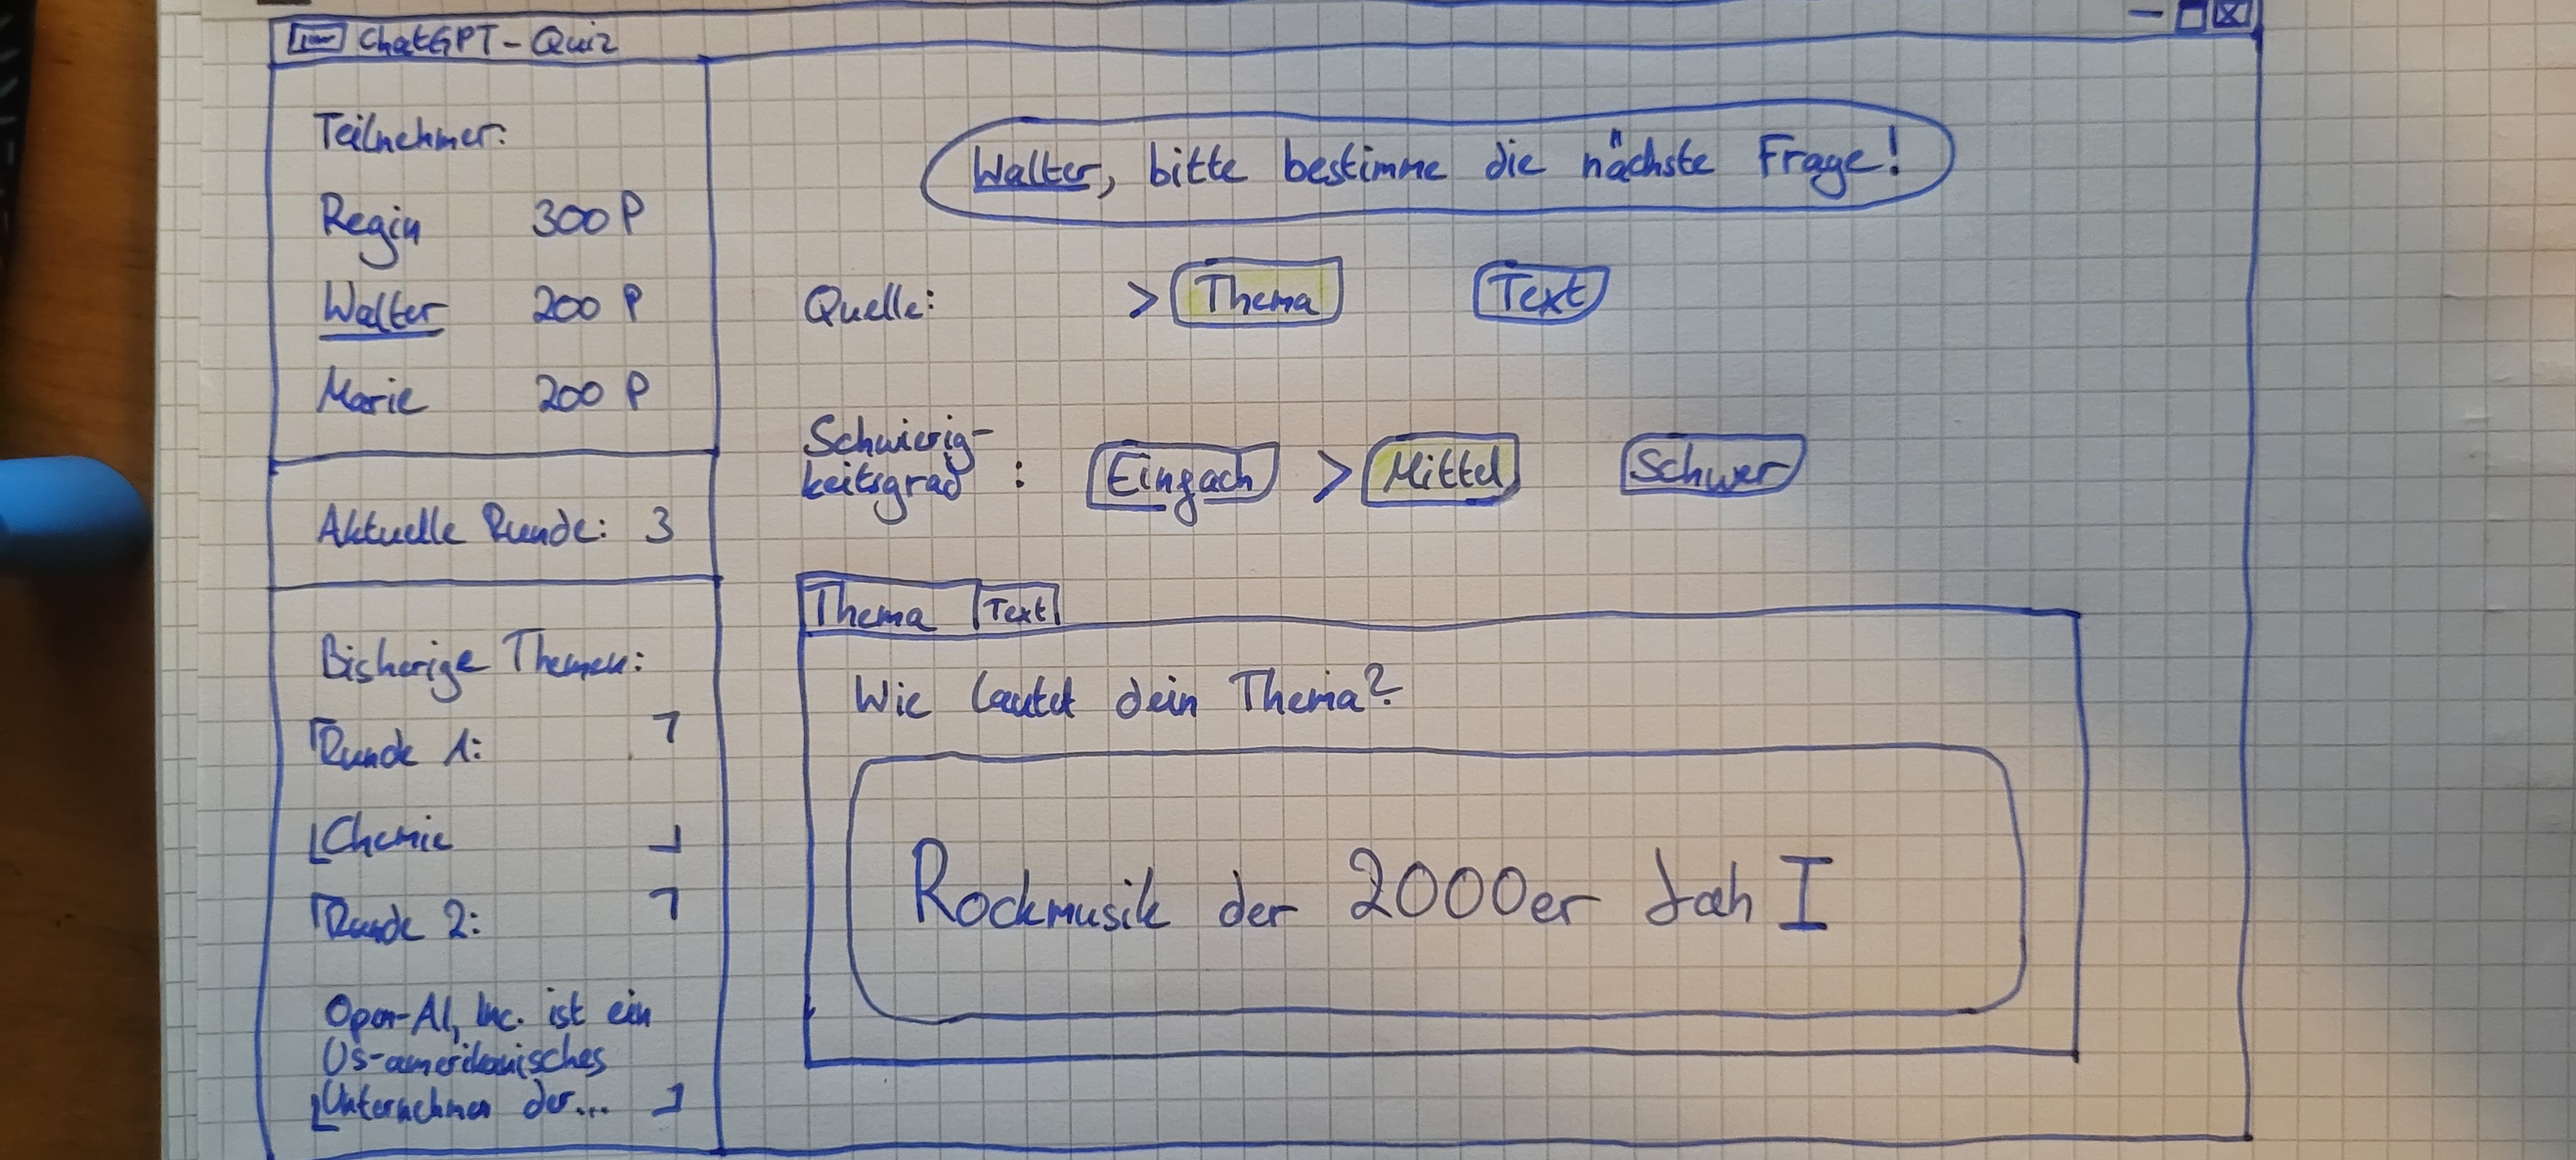 ChatGPT-Quiz
Teilnehmer:
Regin 300 P
Walter 200 P
Marie 200 P
Aktuelle Runde: 3
Bisherige Themen:
Runde 1:
Chemie
Runde 2:
Open-AI, Inc. ist ein
US-amerikanisches
Unternehmen der...
Walter, bitte bestimme die nächste Frage!
Quelle: > Thema Text
Schwierig-
keitsgrad : Eingach > Mittel Schwer
Thema Text
Wie lautet dein Thema?
Rockmusik der 2000er Jah I